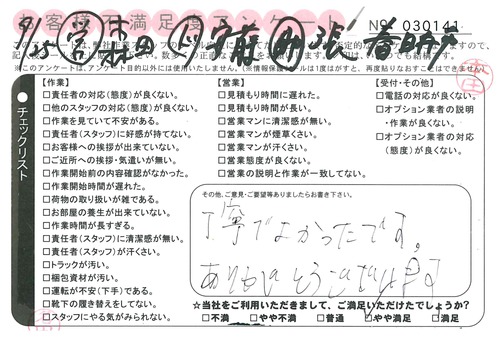 お客様不満足度アンケート
No 030141
9/15
※このアンケートは、アンケート目的以外には使用いたしません。(※情報保護シールは1度がすと、再度貼りなおすことはできません。)
チェックリスト
【作業】
□責任者の対応(態度)が良くない。
□他のスタッフの対応(態度)が良くない。
□作業を見ていて不安がある。
□責任者(スタッフ)に好感が持てない。
□お客様への挨拶が出来ていない。
□ご近所への挨拶・気遣いが無い。
□作業開始前の内容確認がなかった。
□作業開始時間が遅れた。
□荷物の取り扱いが雑である。
□お部屋の養生が出来ていない。
□作業時間が長すぎる。
□責任者(スタッフ)に清潔感が無い。
□責任者(スタッフ)が汗くさい。
□トラックが汚い。
□梱包資材が汚い。
□運転が不安(下手)である。
□靴下の履き替えをしてない。
□スタッフにやる気がみられない。
【営業】
□見積もり時間に遅れた。
□見積もり時間が長い。
□営業マンに清潔感が無い。
□営業マンが煙草くさい。
□営業マンが汗くさい。
□営業態度が良くない。
□営業の説明と作業が一致してない。
【受付・その他】
□電話の対応が良くない。
□オプション業者の説明・作業が良くない。
□オプション業者の対応(態度)が良くない。
その他、ご意見・ご要望等ありましたらお書き下さい。
丁寧でよかったです。
ありがとうございます
☆当社をご利用いただきまして、ご満足いただけたでしょうか?
□不満 □やや不満 □普通 □やや満足 □満足